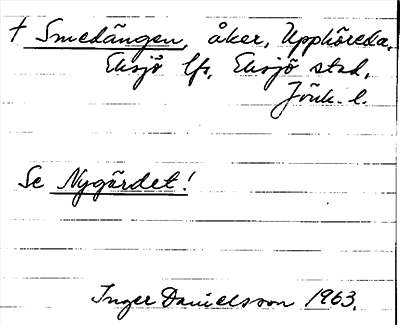 † Smedängen, åker, Upphöreda,
Eksjö lfs, Eksjö stad,
Jönk. l.
Se Nygärdet!
Inger Danielsson 1963.